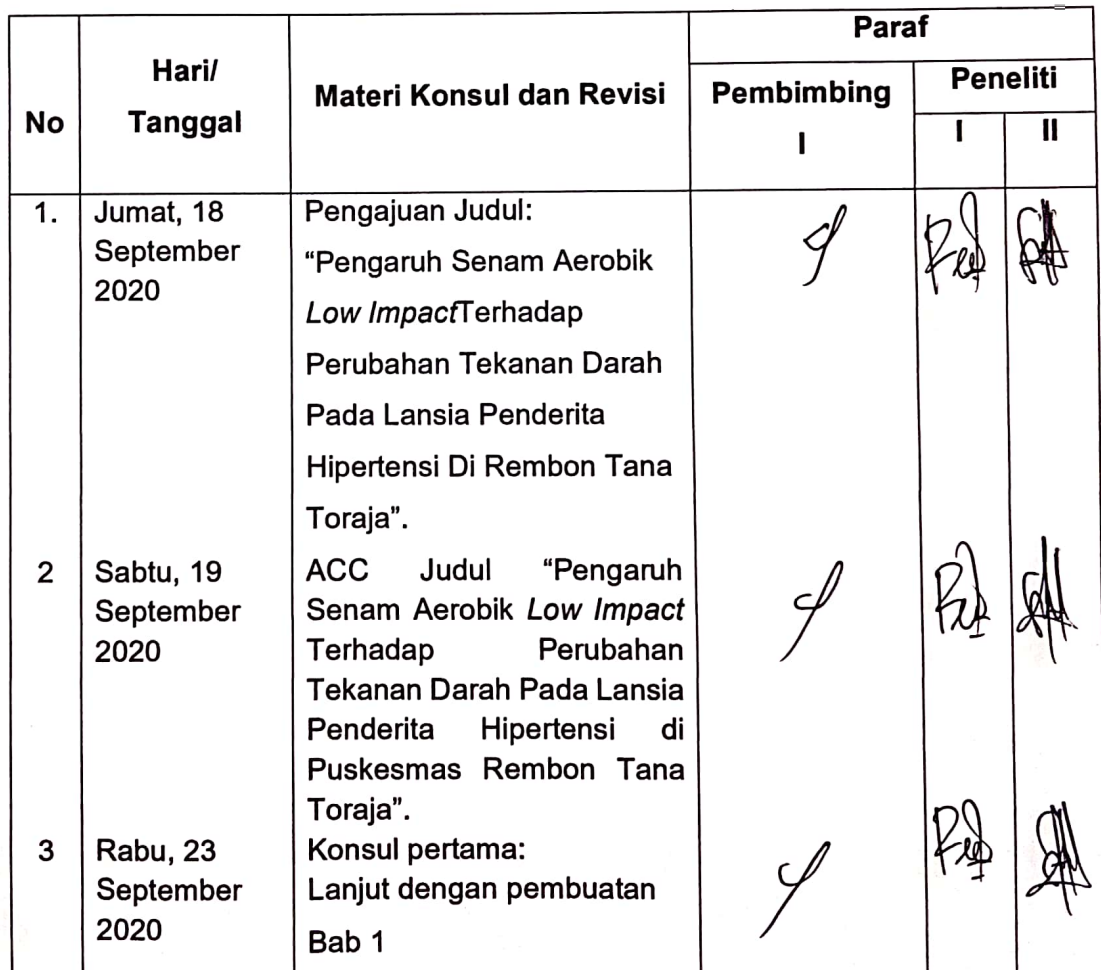 Paraf
Hari/
Peneliti
Materi Konsul dan Revisi
Pembimbing
No
Tanggal
I
I
II
1.
Jumat, 18
September
2020
Pengajuan Judul:
“Pengaruh Senam Aerobik
Low ImpactTerhadap
Perubahan Tekanan Darah
Pada Lansia Penderita
Hipertensi Di Rembon Tana
Toraja”.
2
Sabtu, 19
September
2020
ACC Judul “Pengaruh
Senam Aerobik Low Impact
Terhadap Perubahan
Tekanan Darah Pada Lansia
Penderita Hipertensi di
Puskesmas Rembon Tana
Toraja”.
3
Rabu, 23
September
2020
Konsul pertama:
Lanjut dengan pembuatan
Bab 1